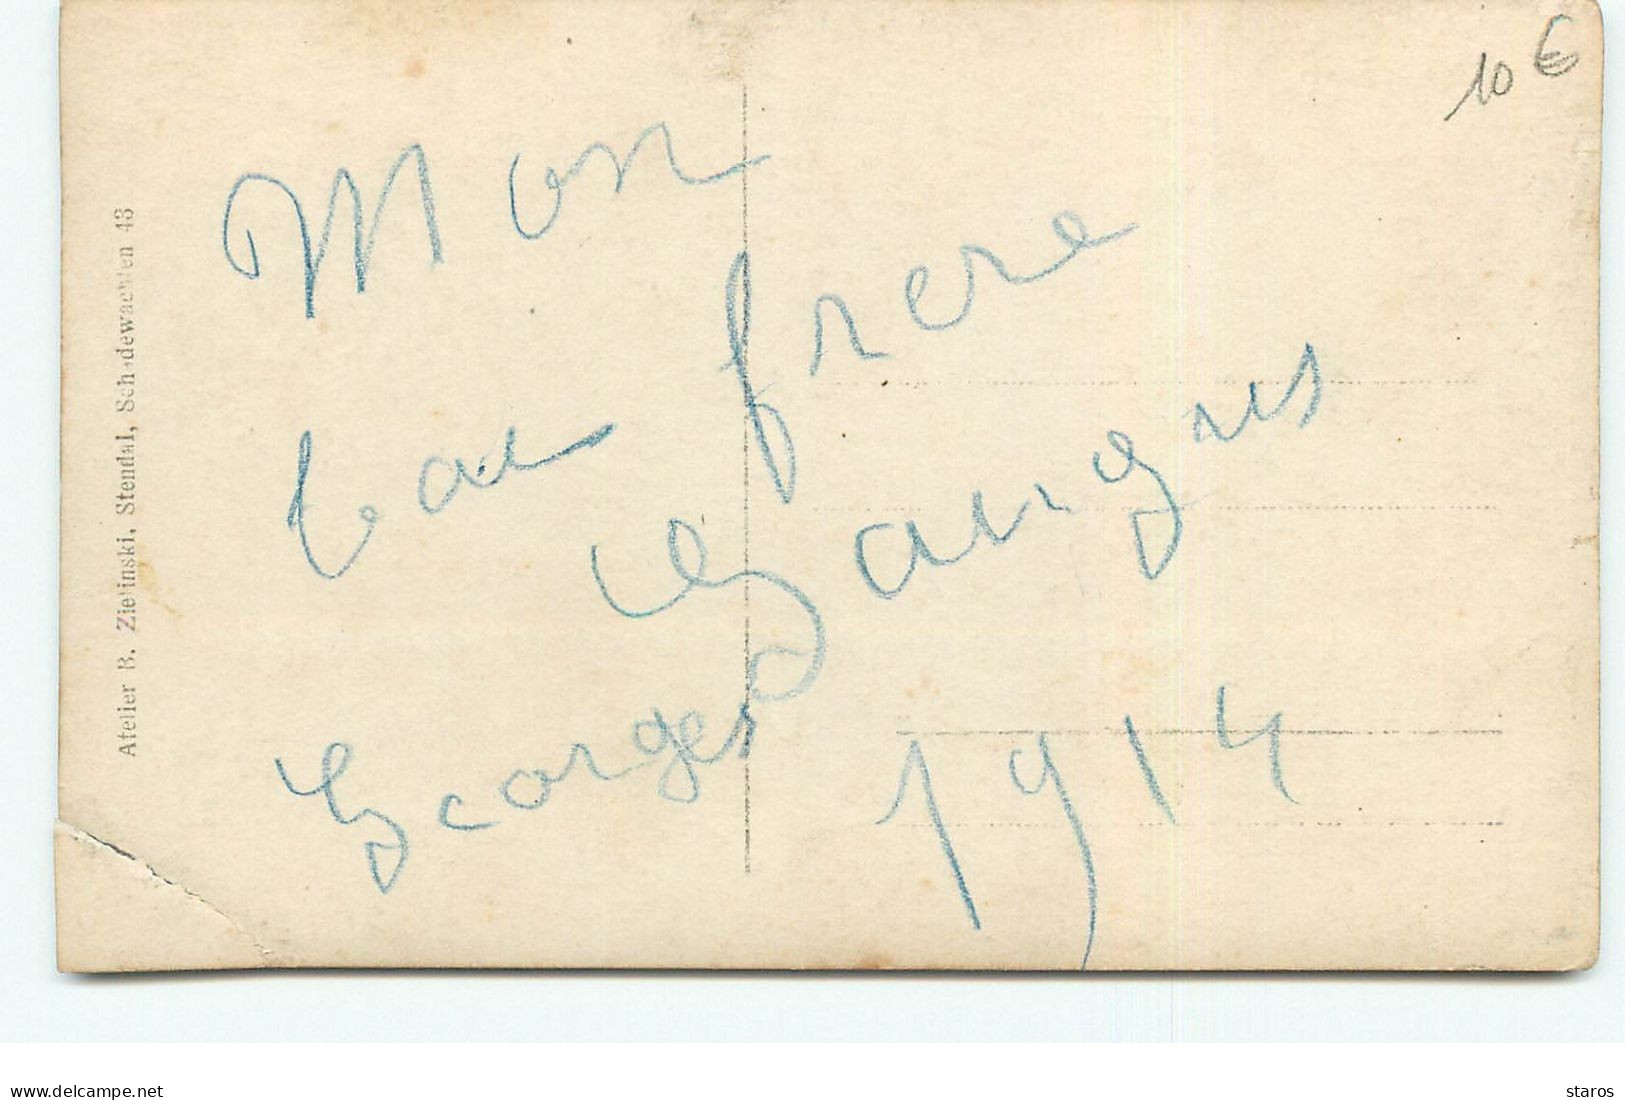 10 €
Mon
beau frere
Georges
1914
Atelier B. Zielinski, Stendal, Schadewachten 43
www.delcampe.net
staros